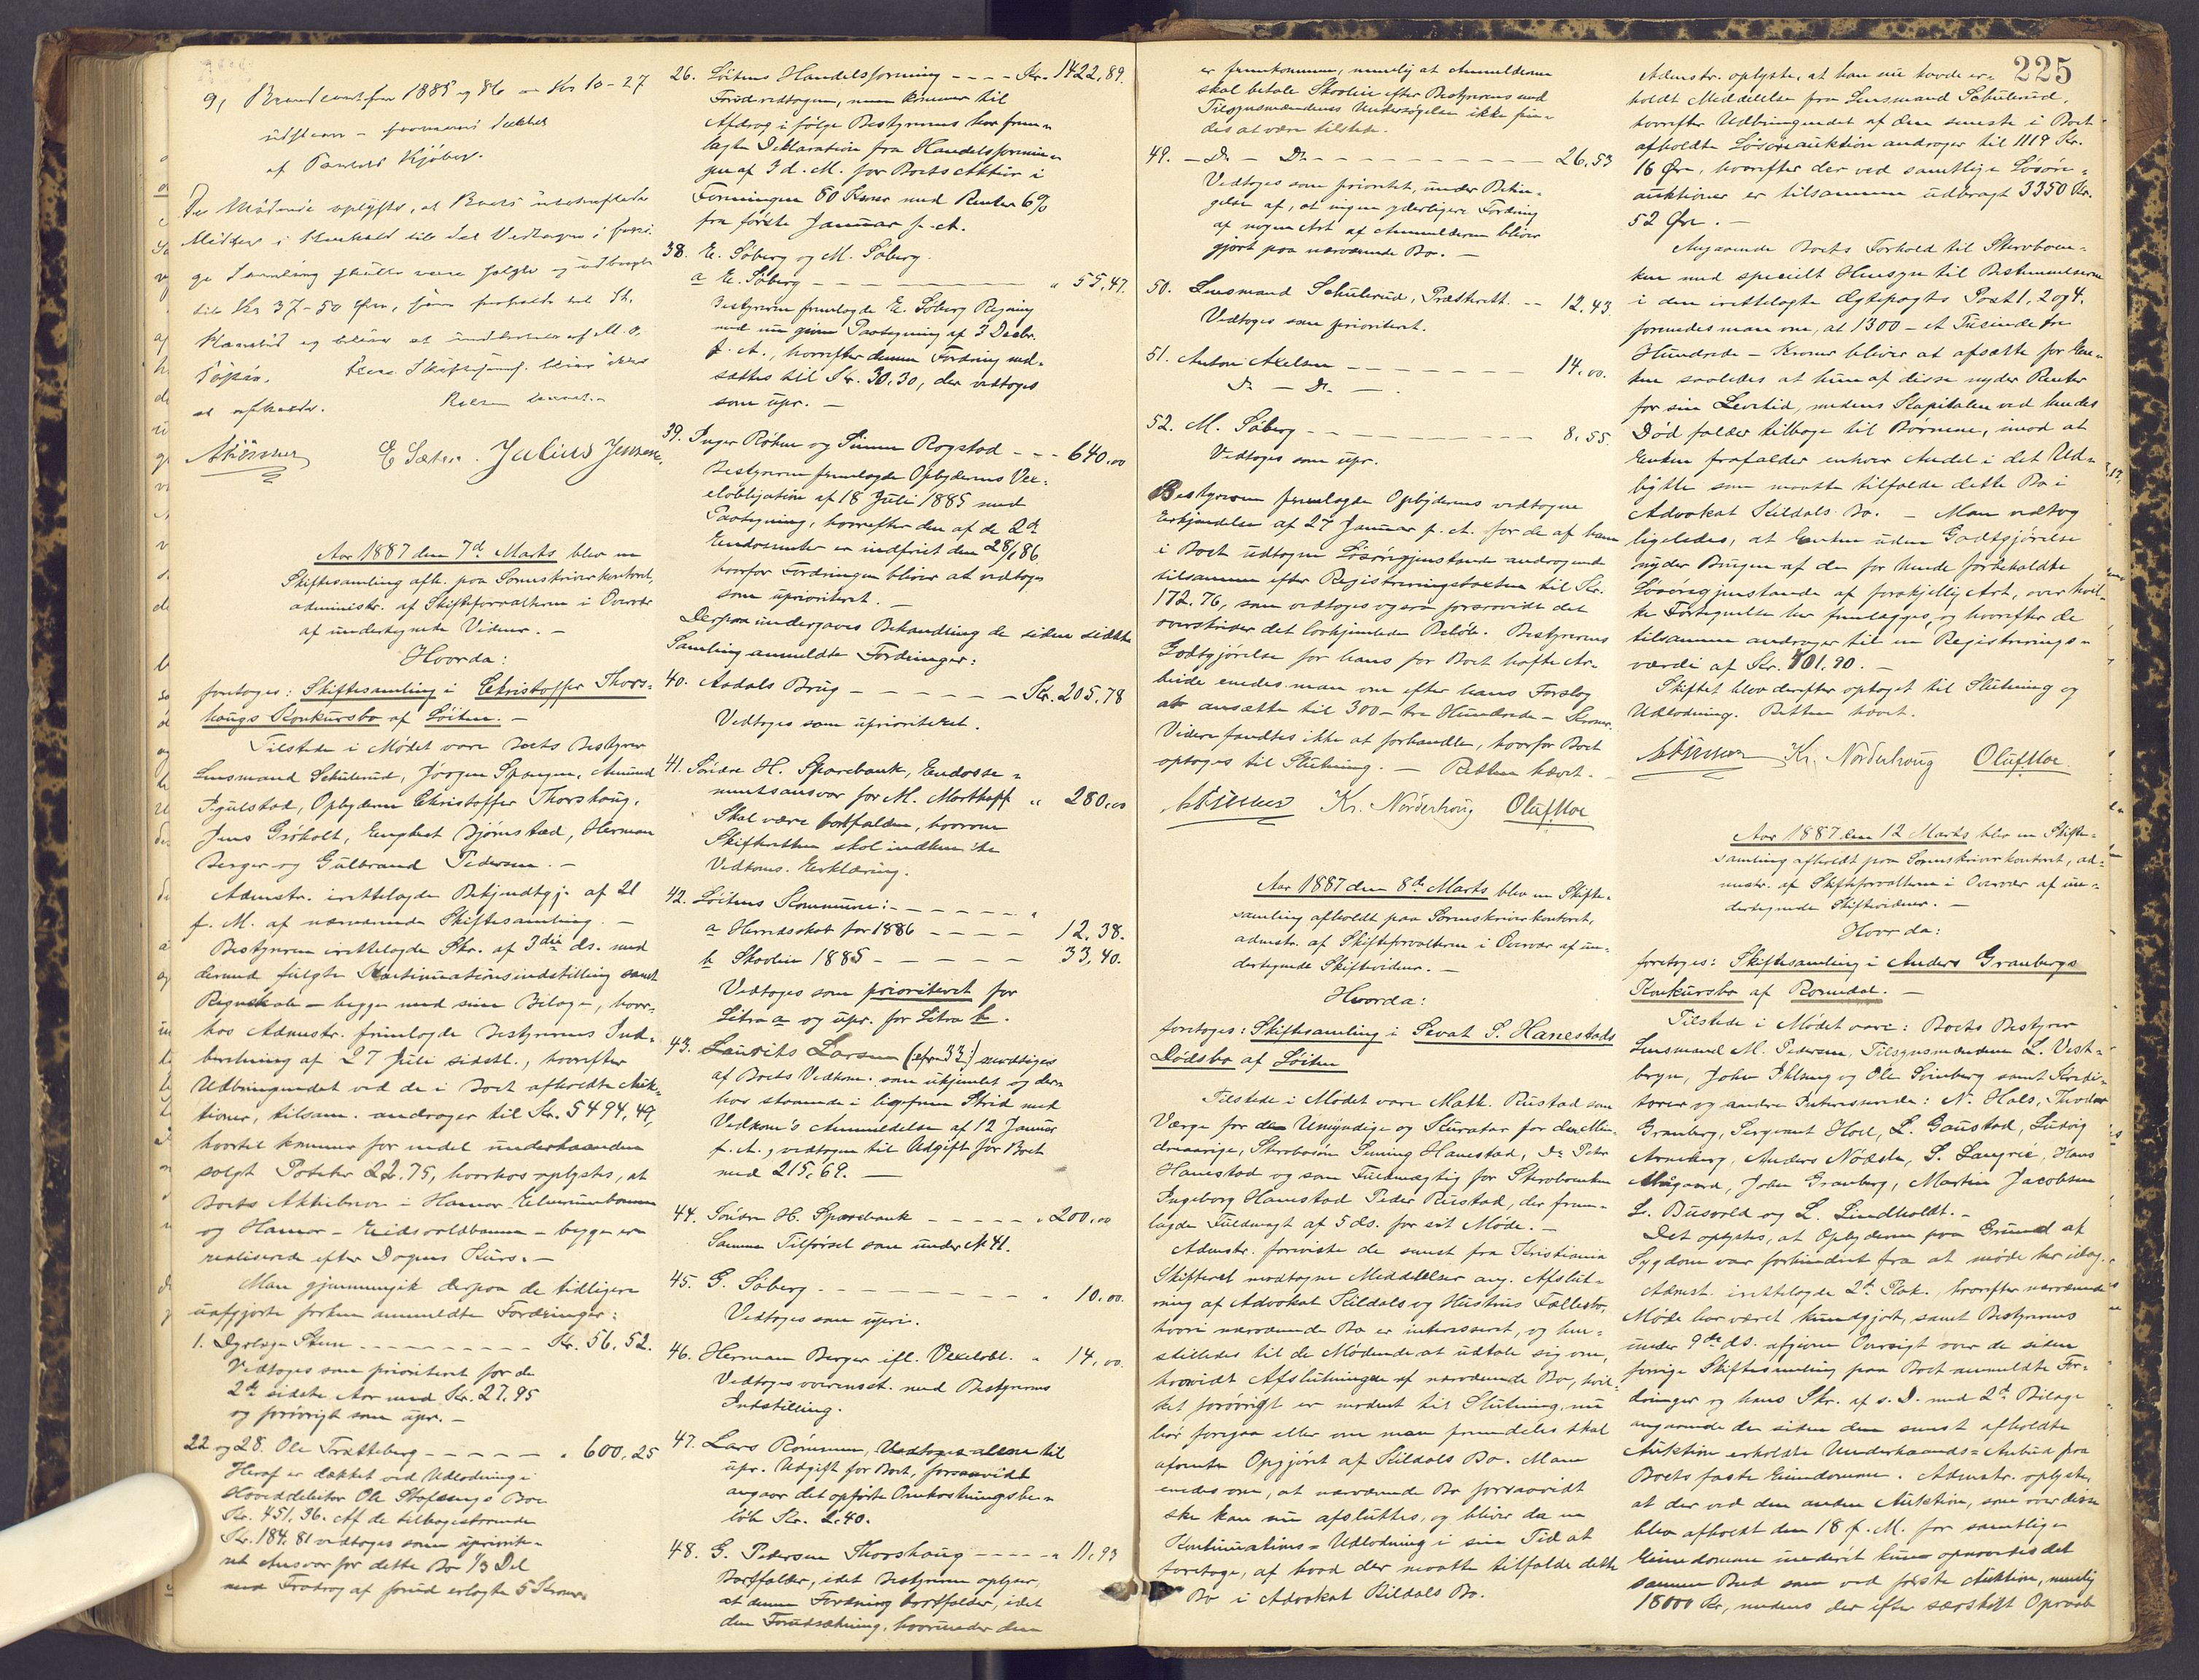 9, Brandcont for 1885 og 86 Kr 10-27
af Pantets Kjøber.
De Mødende oplyste, at Boets
Midler i Henhold til det Vedtagne i forri-
ge Samling skulle være solgte og udbragt
til Kr 37-50 Øre,
at afholdes. Retten hævet.-
E Sæter. Julius Jensen.
Aar 1887 den 7d Marts blev en
Skiftesamling afh. paa Sorenskriverkontoret,
administr. af Skifteforvalteren i Overvær
af undertegnede Vidner. -
Hvorda:
foretoges: Skiftesamling i Christoffer Thors-
haugs Konkursbo af Løiten. -
Tilstede i Mødet vare Boets Bestyrer
Lensmand Schulerud, Jørgen Spangen, Amund
Fjulstad, Opbyderen Christoffer Thorshaug,
Jens Grøholt, Engebret Bjørnstad, Herman
Berger og Gulbrand Pedersen. -
Admstr. irettelagde Bekjendtgj. af 21
f. M. af nærværende Skiftesamling. -
Bestyreren irettelagde Skr. af 3die ds. med
dermed fulgte Kontinuationsindstilling samt
Regnskab - begge med sine Bilage, hvor-
hos Admstr. fremlagde Bestyrerens Ind-
beretning af 27 Juli sidstl., hvorefter
Udbringendet ved de i Boet afholdte Auk-
tioner, tilsam. andrager til Kr. 5494,49,
hvortil kommer for endel underhaanden
solgt Poteter 22.75, hvorhos oplystes, at
Boets Aktiebrev i Hamar-Elverumbanen
og Hamar-Eidsvoldbanen - begge er
realiserede efter Dagens Kurs. -
Man gjennemgik derpaa de tidligere
uafgjorte forhen anmeldte Fordringer:
1. Dyrlæge Steen - - - - Kr. 56.52.
Vedtoges som prioriteret for de
2de sidste Aar med Kr. 27.95
og forøvrigt som upr. -
22 og 28. Ole Trætteberg - - - - " 600,25
Heraf er dækket ved Udlodning i
Hoveddebitor Ole Stafsengs Bo
Kr. 451,36. Af de tilbagestaaende
Kr. 184.81 vedtoges som upriorite-
ret Ansvar for dette Bo 1/3 Del
med Fradrag af forud erlagte 5 Kroner.
26. Løitens Handelsforening - - - - Kr. 1422,89.
Forud vedtagen, men kommer til
Afdrag i følge Bestyrerens her frem-
lagte Deklaration fra Handelsforenin-
gen af 3 d. M. for Boets Aktie i
Foreningen 80 Kroner med Renter 6%
fra første Januar f. A.
38. E. Søberg og M. Søberg.
a E. Søberg - - - - " 55,47.
Bestyreren fremlagde E. Søberg Regning
med nu given Paategning af 3 Decbr.
f. A., hvorefter denne Fordring ned-
sættes til Kr. 30,30, der vedtoges
som upr. -
39. Inger Røhne og Simen Rogstad - - - 640,00
Bestyreren fremlagde Opbyderens Vex-
elobligation af 18 Juli 1885 med
Paategning, hvorefter den af de 2de
Endossenter er indfriet den 28/1 86
hvorfor Fordringen bliver at vedtage
som uprioriteret. -
Derpaa undergaves Behandling de siden sidste
Samling anmeldte Fordringer:
40. Aadals Brug - - - - - Kr. 205,78
Vedtoges som uprioriteret.
41. Søndre H. Sparebank, Endosse-
mentsansvar for M. Morthoff " 280,00
Skal være bortfalden, hvorom
Skifteretten skal indhente
Vedkoms. Erklæring.
42. Løitens Kommune: - - - - -
a Herredsskat for 1886 - - - - 12,38.
b Skovliu 1885 - - - - - 33,40.
Vedtoges som prioriteret for
Litra a og upr. for Litra b.
43. Laurits Larsen (cfr 33)
af Boets Vedkom. som ukjendet og der-
hos staaende i ligefrem Strid med
Vedkom's Anmeldelse af 12 Januar
f. A., vedtagen til Udgift for Boet
med 215,69. -
44. Søndre H. Sparebank - - - - - " 200,00
Samme Tilførsel som under № 41.
45. G. Søberg - - - - - " 10.00.
Vedtoges som upri.
46. Herman Berger ifl. Vexelobl. " 14,00.
Vedtoges overensst. med Bestyrerens
Indstilling.
47. Lars Rømmen, Vedtoges alene til
upr. Udgift for Boet, forsaavidt
angaar det opførte Omkostningsbe-
løb Kr. 2.40.
48. G. Pedersen Thorshaug - - - - " 11,93
Bortfalder, idet Bestyreren oplyser,
at denne Fordring bortfalder, idet
den Forudsætning, hvorunder den
225
er fremkommen, nemlig at Anmelderen
skal betale Skovliu efter Bestyrerens med
Tilsynsmændenes Undersøgelse ikke fin-
des at være tilstede.
49. - Do - Do - - - - - 26,53
Vedtoges som prioritet, under Betin-
gelse af, at ingen yderligere Fordring
af nogen Art af Anmelderen bliver
gjort paa nærværende Bo. -
50. Lensmand Schulerud, Præsterett. - - 12,43.
Vedtoges som prioriteret.
51. Anton Axelsen - - - - - 14.00.
Do - Do - .
52. M. Søberg - - - - - 8.55.
Vedtoges som upr.
Bestyreren fremlagde Opbyderens vedtagne
Erkjendelse af 27 Januar f. A. for de af ham
i Boet udtagne Løsøregjenstande andragende
tilsammen efter Registreringstaxten til Kr.
172.76, som vedtoges ogsaa forsaavidt det
overskrider det lovhjemlede Beløb. Bestyrerens
Godtgjørelse for hans for Boet havte Ar-
beide enedes man om efter hans Forslag
at ansætte til 300 - tre Hundrede - Kroner.
Videre fandtes ikke at forhandle, hvorfor Boet
optoges til Slutning. - Retten hævet. -
Kr. Norderhoug Oluf Moe
Aar 1887 den 8de Marts blev en Skifte-
samling afholdt paa Sorenskriverkontoret,
admstr. af Skifteforvalteren i Overvær af un-
dertegnede Skiftevidner. -
Hvorda:
foretoges: Skiftesamling i Sevat S. Hanestads
Dødsbo af Løiten
Tilstede i Mødet vare Math. Rustad som
Værge for den Umyndige og Kurator for den Min-
dreaarige, Stervbosøn Siming Hanestad, Do Peter
Hanestad og som Fuldmægtig for Stervboenken
Ingeborg Hanestad Peder Rustad, der frem-
lagde Fuldmagt af 5 ds. for sit Møde. -
Admstr. foreviste de senest fra Kristiania
Skifteret modtagne Meddelelser ang. Afslut-
ning af Advokat Kildals og Hustrus Fællesbo,
hvori nærværende Bo er interesseret, og hen-
stilledes til de Mødende at udtale sig om,
hvorvidt Afslutningen af nærværende Bo, hvil-
ket forøvrigt er modent til Slutning, nu
bør foregaa eller om man fremdeles skal
afvente Opgjøret af Kildals Bo. Man
enedes om, at nærværende Bo forsaavidt
ske kan nu afsluttes, og bliver da en
Kontinuations-Udlodning i sin Tid at
foretage, af hvad der maatte tilfalde dette
Bo i Advokat Kildals Bo.
Admstr. oplyste, at han nu havde er-
holdt Meddelelse fra Lensmand Schulerud,
hvorefter Udbringendet af den seneste i Boet
afholdte Løsøreauktion andrager til 1119 Kr.
16 Øre, hvorefter der ved samtlige Løsøre-
auktioner er tilsammen udbragt 3350 Kr.
52 Øre. -
Angaaende Boets Forhold til Stervboen-
ken med specielt Hensyn til Bestemmelserne
i den irettelagte Ægtepagts Post 1, 2 og 4,
forenedes man om, at 1300 - et Tusinde tre
Hundrede - Kroner bliver at afsætte for En-
ken saaledes at hun af disse nyder Renter
for sin Levetid, medens Kapitalen ved hendes
Død falder tilbage til Børnene, imod at
Enken frafalder enhver Andel i det Ud-
bytte som maatte tilfalde dette Bo i
Advokat Kildals Bo. - Man vedtog
ligeledes, at Enken uden Godtgjørelse
nyder Brugen af den for hende forbeholdte
Løsøregjenstande af forskjellig Art, over hvil-
ke Fortegnelse her fremlægges, og hvorefter de
tilsammen andrager til en Registrerings-
værdi af Kr. 101.90. -
Skiftet blev derefter optaget til Slutning og
Udlodning. Retten hævet.
Kr. Norderhoug Oluf Moe.
Aar 1887 den 12 Marts blev en Skifte-
samling afholdt paa Sorenskriverkontoret, ad-
mstr. af Skifteforvalteren i Overvær af un-
dertegnede Skiftevidner. -
Hvorda:
foretoges: Skiftesamling i Anders Granbergs
Konkursbo af Romedal. -
Tilstede i Mødet vare: Boets Bestyrer
Lensmand M. Pedersen, Tilsynsmændene L. Vest-
bryn, John Ihlseng og Ole Svinberg samt Kredi-
torer og andre Interesserede: N. Hals, Theodor
Granberg, Sergeant Hoel, L. Gaustad, Ludvig
Arneberg, Anders Nødsle, S. Hans
Alugaard, John Granberg, Martin Jacobsen
L. Busvold og L. Lindholdt. -
Det oplystes, at Opbyderen paa Grund af
Sygdom var forhindret fra at møde her idag.
Admst. irettelagde 2de Plak., hvorefter nærværende
Møde har været kundgjort, samt Bestyrerens
under 9de ds. afgivne Oversigt over de siden
forrige Skiftesamling paa Boet anmeldte For-
dringer og hans Skr. af s. D. med 2de Bilage
angaaende de siden den senest afholdte
Auktion erholdte Underhaands-Anbud paa
Boets faste Eiendomme. Admstr. oplyste,
at der ved den anden Auktion, som over disse
blev afholdt den 18 f. M. for samtlige
Eiendomme inederet kun opnaaedes det
samme Bud som ved første Auktion, nemlig
18000 Kr, medens der efter særskilt Opraab